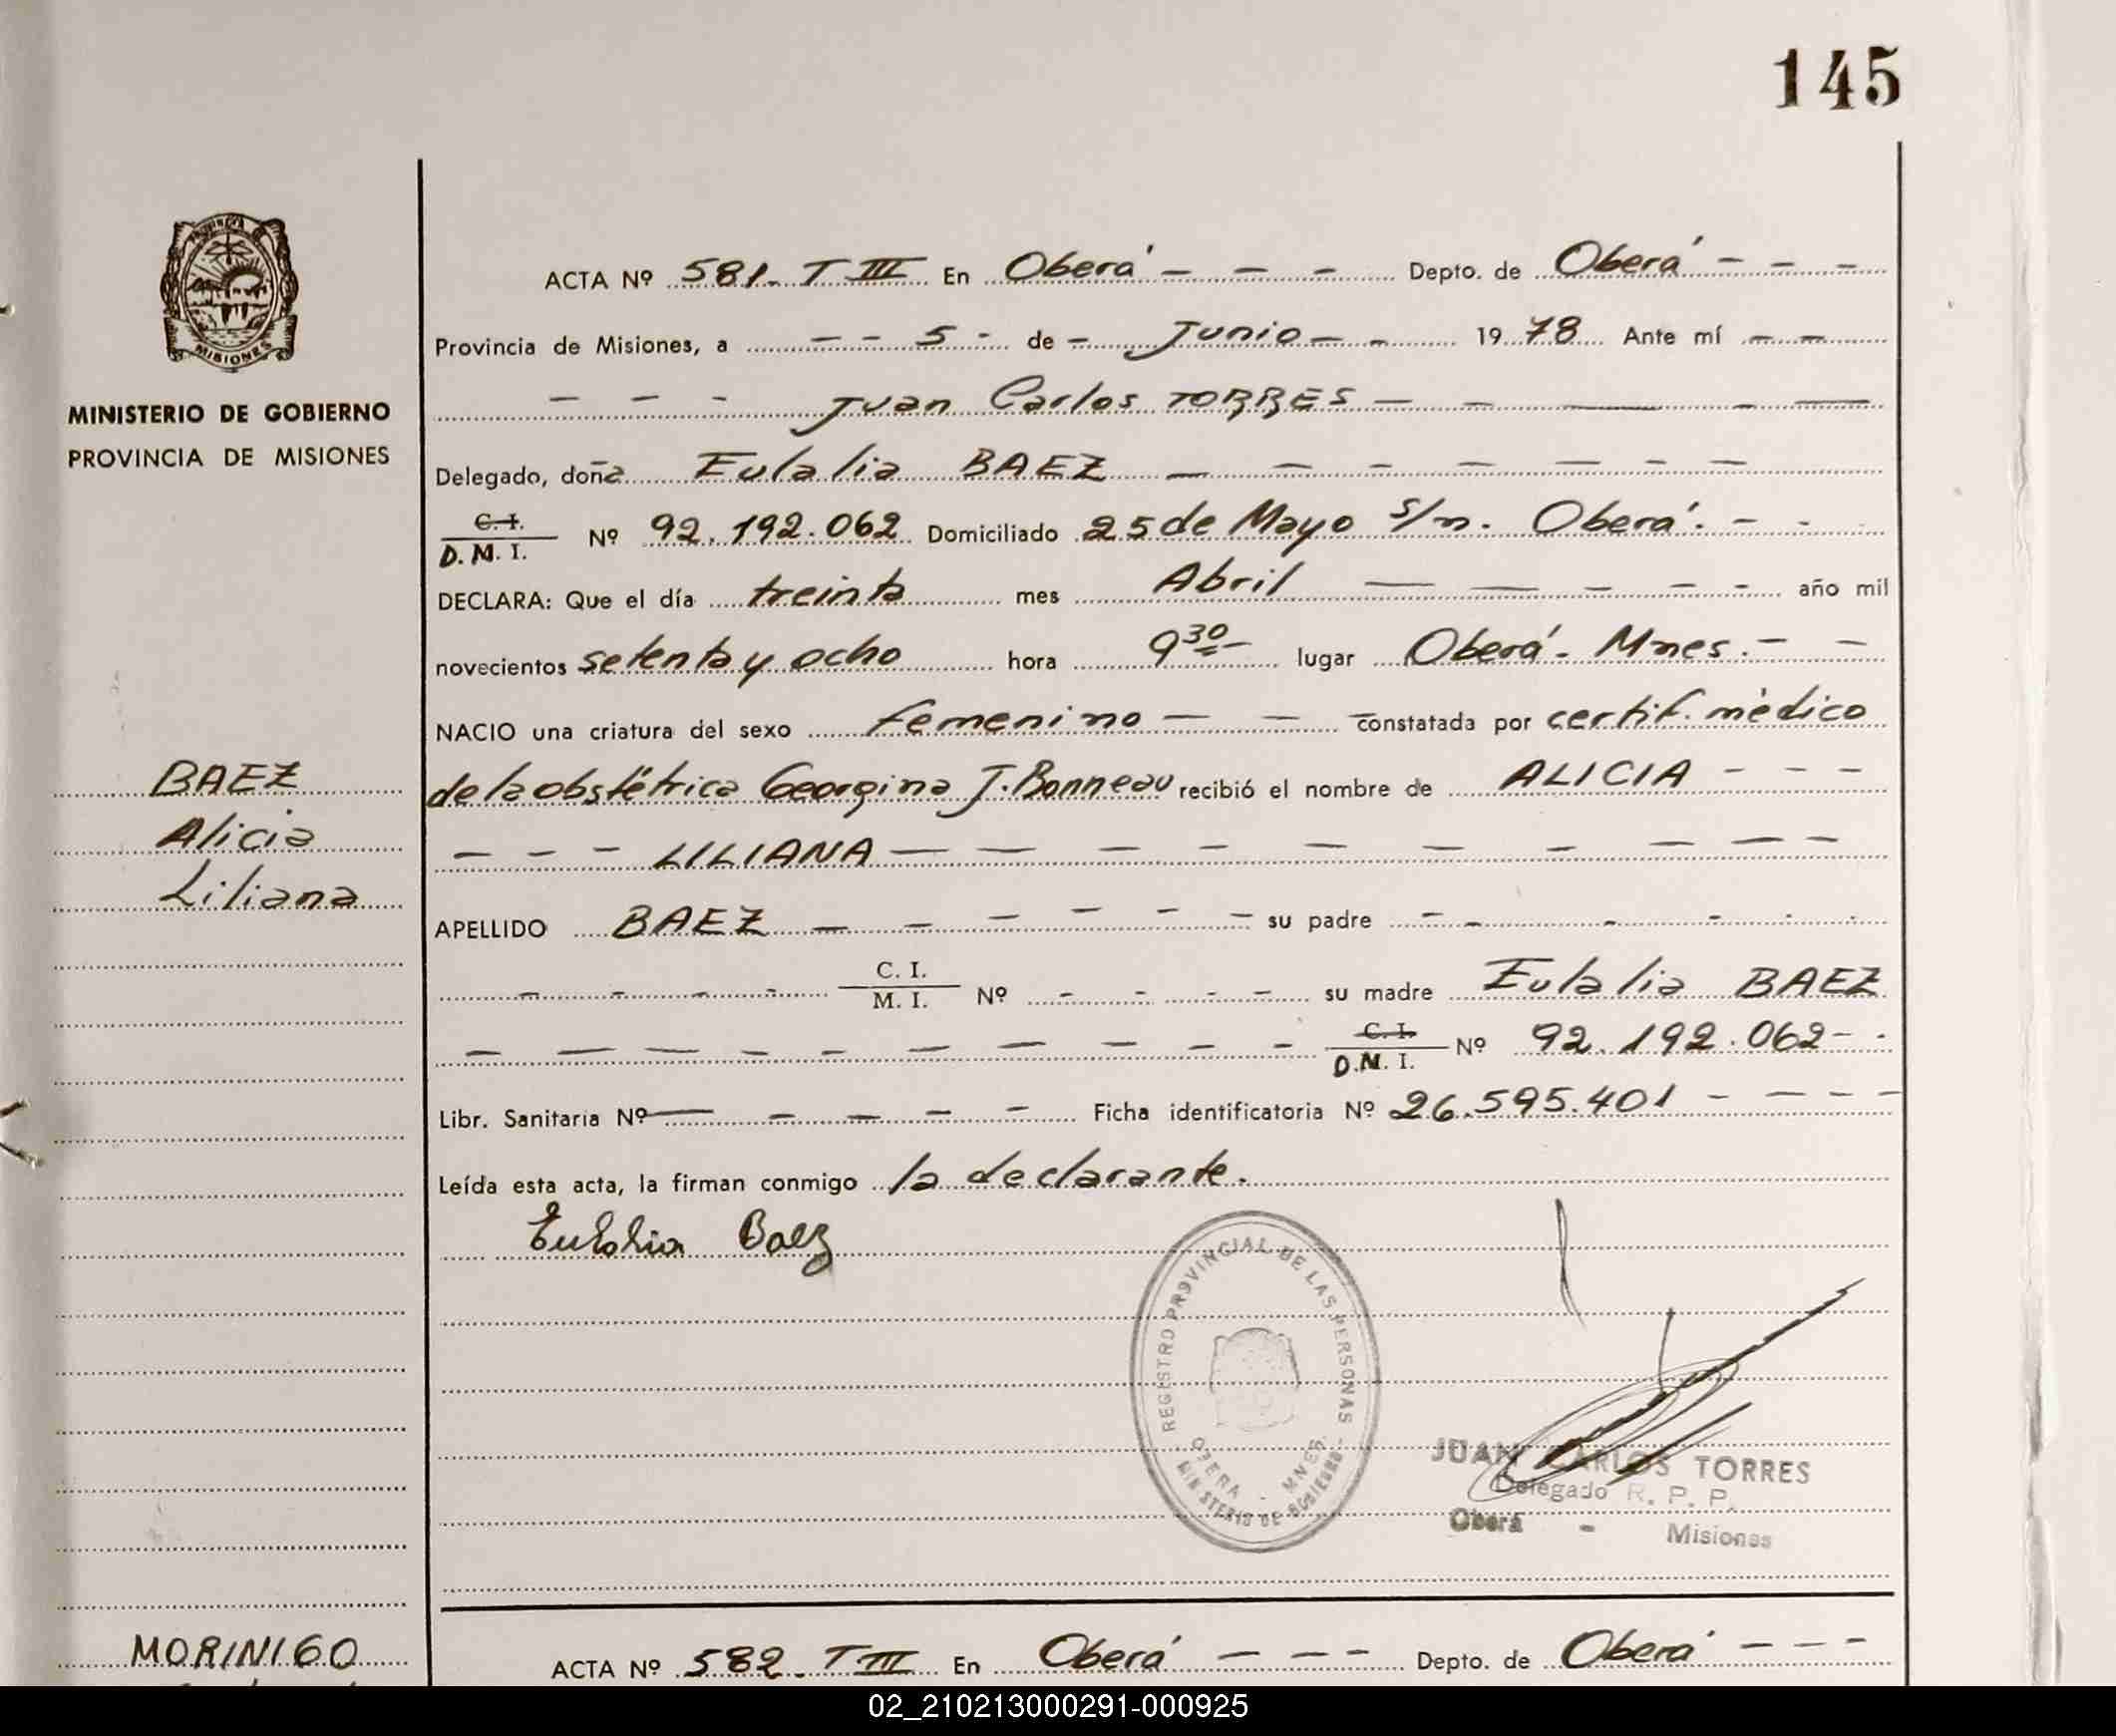 145
MISIONES
MINISTERIO DE GOBIERNO
PROVINCIA DE MISIONES
ACTA Nº 581. T III En Oberá - - - Depto. de Oberá - - -
Provincia de Misiones, a - - 5 - de - Junio - - 1978 Ante mí - -
- - - Juan Carlos TORRES - - - - -
Delegado, doña Eulalia BAEZ - - - - - - -
C. I.
D. M. I. Nº 92.192.062 Domiciliado 25 de Mayo s/n. Oberá. - -
DECLARA: Que el día treinta mes Abril - - - - - año mil
novecientos setenta y ocho hora 9 30 - lugar Oberá - Mnes. - -
NACIO una criatura del sexo femenino - - - constatada por certif. médico
de la obstétrica Georgina J. Bonneau recibió el nombre de ALICIA - - -
- - - LILIANA - - - - - - - - -
BAEZ
Alicia
Liliana
APELLIDO BAEZ - - - - - - su padre - - - - - -
- - - - C. I.
M. I. Nº - - - - su madre Eulalia BAEZ
- - - - - - - - - - C. I.
D. M. I. Nº 92.192.062 - .
Libr. Sanitaria Nº - - - - - Ficha identificatoria Nº 26.595.401 - - - -
Leída esta acta, la firman conmigo la declarante.
Eulalia Baez
REGISTRO PROVINCIAL DE LAS PERSONAS
OBERA - MNES.
MINISTERIO DE GOBIERNO
JUAN CARLOS TORRES
Delegado R. P. P.
Oberá - Misiones
MORINIGO
ACTA Nº 582. T III En Oberá - - - Depto. de Oberá - - -
02_210213000291-000925